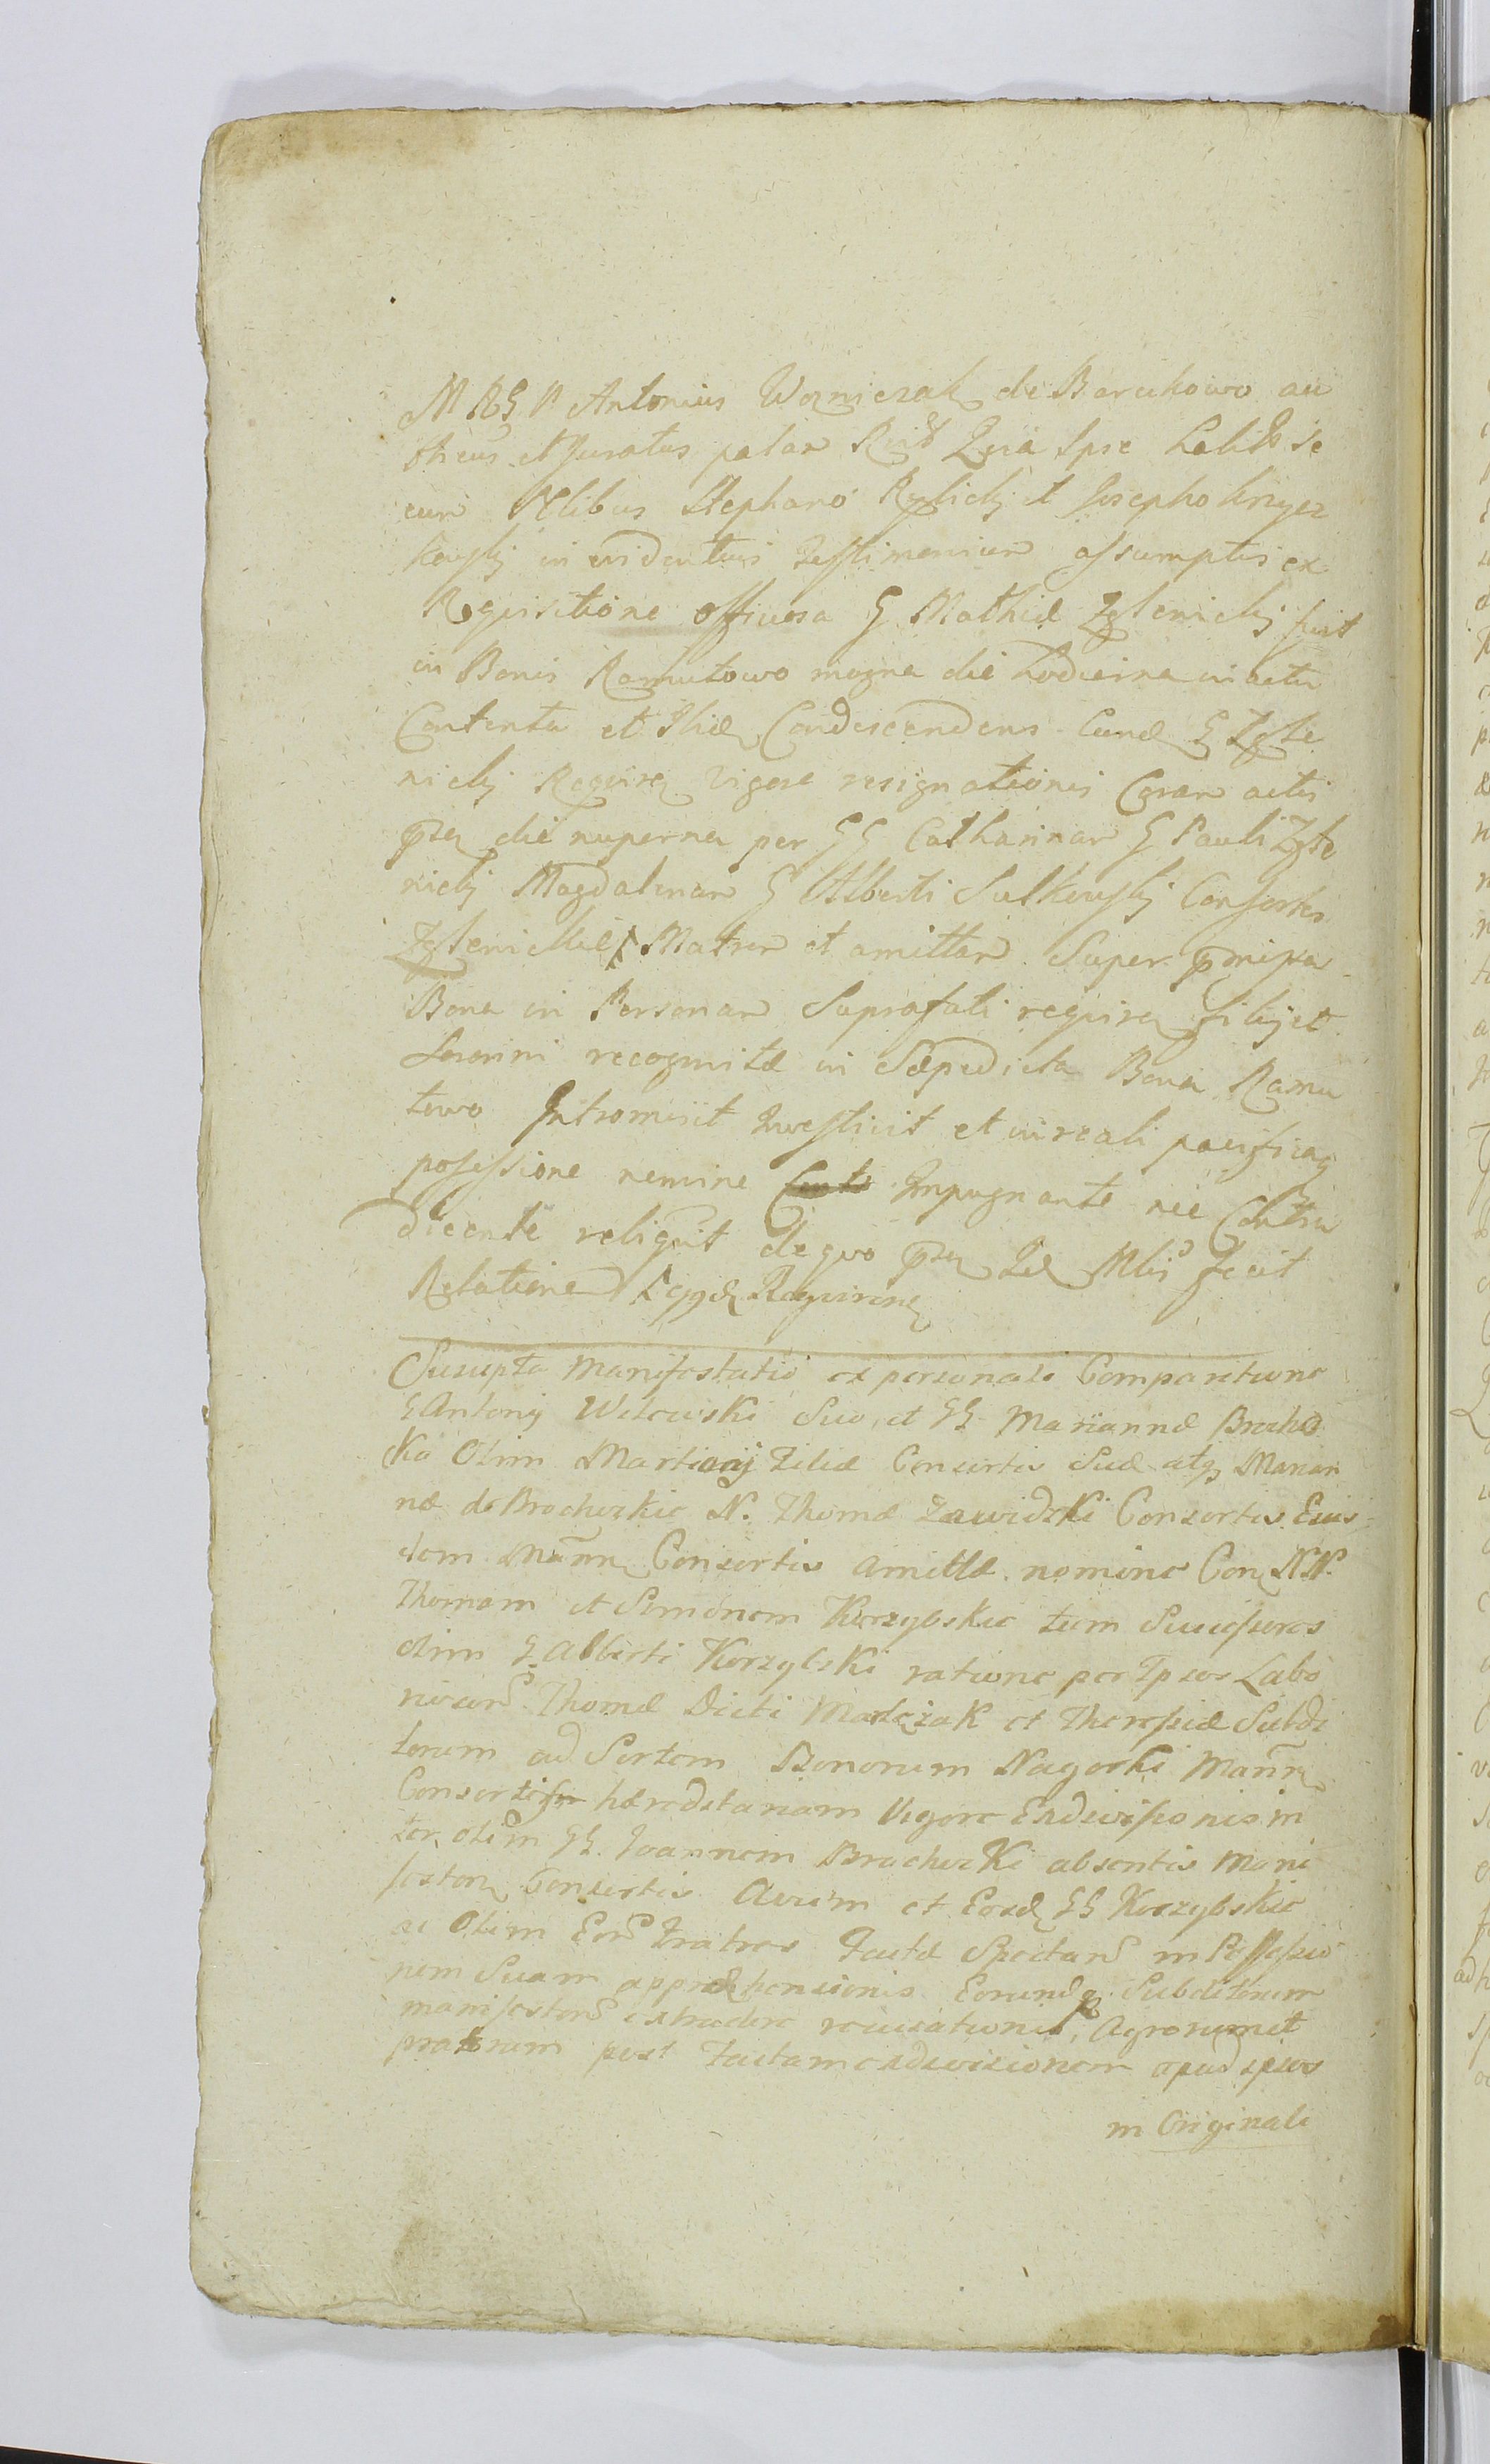 M R G P Antonius Wozniczak de Barukowo au
thcus et Juratus palar Rcit Quia Ipse habitis se
cum Nlibus Stephano Rylickj et Josepho
kowskj in evidentius Testimonium assumptis ex
Requisitione officiosa G Mathiæ Zglenickj fuit
in Bonis Ramutowo magna die hodierna in actu
Contenta et Ibid Condescendens Eund G Zgle
nickj Require vigore resignationis Coram actis
die nuperna per GG Catharinam G Pauli Zgle
nickj Magdalenam G Alberti Sulkowskj Consortes
Zglenickie Matrem et amittam Super
Bona in Personam Suprafati require filij et
Sororini recognitæ in Sæpedicta Bona Ramu
towo Intromisit Investivit et in reali pacificaq
possessione nemine Impugnante nec Contra
dicente reliquit de quo Mlis fecit
Relatione Requirene
Suscepta Manifestatio ex personali Comparitione
G Antonij Witowski Suo, et GG Mariannæ Brochoc
ka Olim Martiani Filiæ Consortis Suæ atq Marian
næ de Brochockie N. Thomæ Zawidzki Consortis Eius
dem Mann Consortis amittæ nomine Con NN.
Thomam et Simonem Korzybskie tum Successores
olim G Alberti Korzybski ratione per Ipsos Labo
riosor Thomæ Dicti Marczak et Theresiæ Subdi
torum ad Sortem Bonorum Nagorki Mann
Consortis hæreditariam Vigore Exdivisionis in
ter olim GG Joannem Brochocki absentis Mani
feston Consortis Avum et Eosd GG Korzybskie
ac Olim Eor Fratres Factæ Spectan in Possessio
nem Suam apprehensionis Eorundq Subditorum
manifeston extradere recusationis, Agrorum et
pratorum post Factam exdivisionem apud ipsos
in Originali